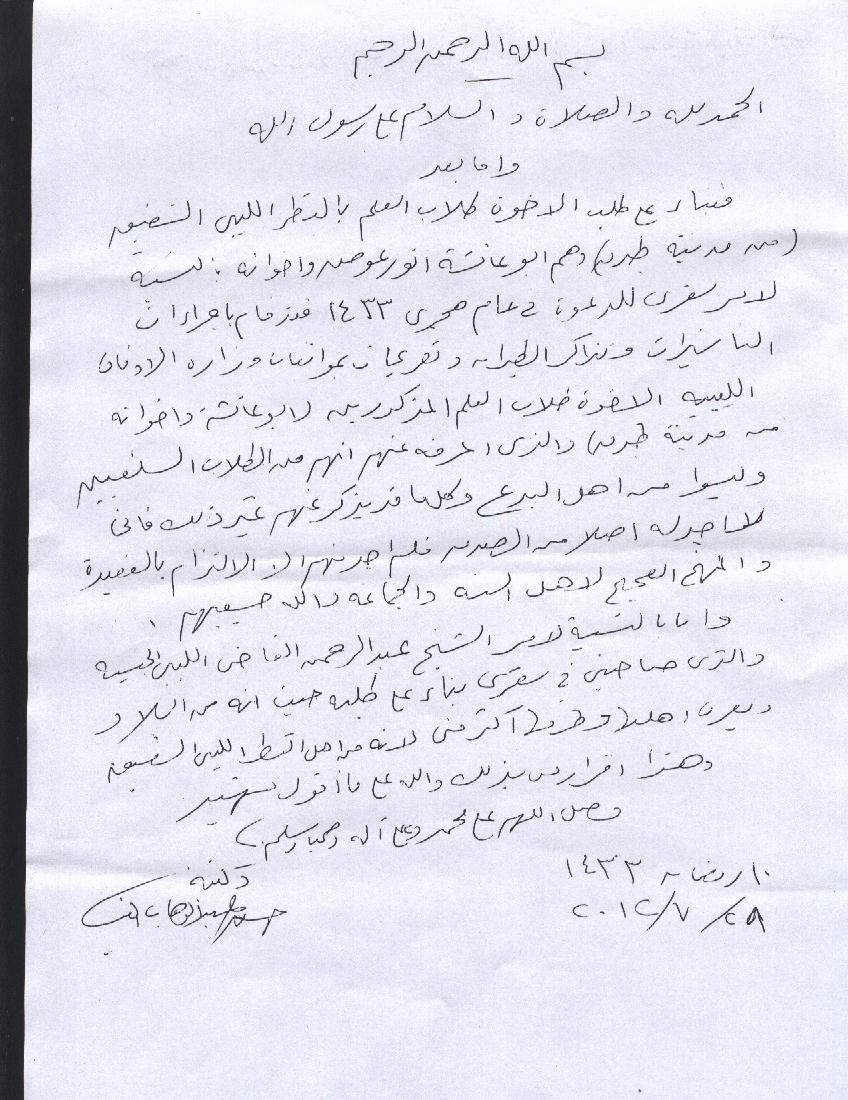 بسم الله الرحمن الرحيم
الحمد لله والصلاة والسلام على رسول الله
واما بعد
فبناء على طلب الاخوة طلاب العلم بالقطر الليبي الشقيق
(من مدينة طبرق) وهم ابو عائشة انور عوض واخوانه بالنسبة
لأمر سفرى للدعوة في عام هجرى ١٤٣٣ فقد قام باجراءات
التأشيرات وتذاكر الطيران وتصريحات بموافقات وزاره الاوقاف
الليبيه الاخوة طلاب العلم المذكورين (ابو عائشة واخوانه
من مدينة طبرق) والذى اعرفه عنهم انهم من الطلاب السلفيين
وليسوا من اهل البدع وكل ما قد يذكر عنهم غير ذلك فانى
اجد له اصلا من الصدق فلم اجد منهم الا الالتزام بالعقيدة
والمنهج الصحيح لاهل السنه والجماعه والله حسيبهم
واما بالنسبة لامر الشيخ عبدالرحمن القاضى الليبي الجنسيه
والذى صاحبنى فى سفرى بناء على طلبه حيث انه من البلاد
ويعرف اهلها وطرقها اكثر منى لانه من اهل القطر الليبي الشقيق
وهذا اقرار منى بذلك والله على ما اقول شهيد
وصل اللهم على محمد وعلى آله وصحبه وسلم
١٠ رمضان ١٤٣٣
وكتبه
٢٠١٢/٧/٢٨